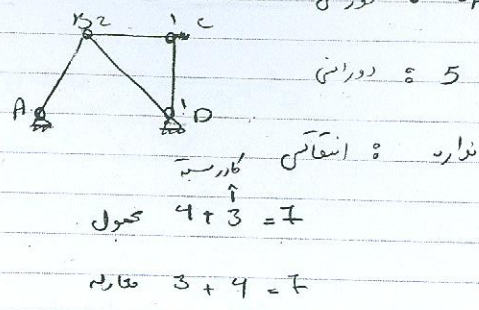 B 2 1 C
A 1 D
5 : دورانی
ندارد : انتقالی
کادر بسته
4 + 3 = 7 مجهول
3 + 4 = 7 معادله